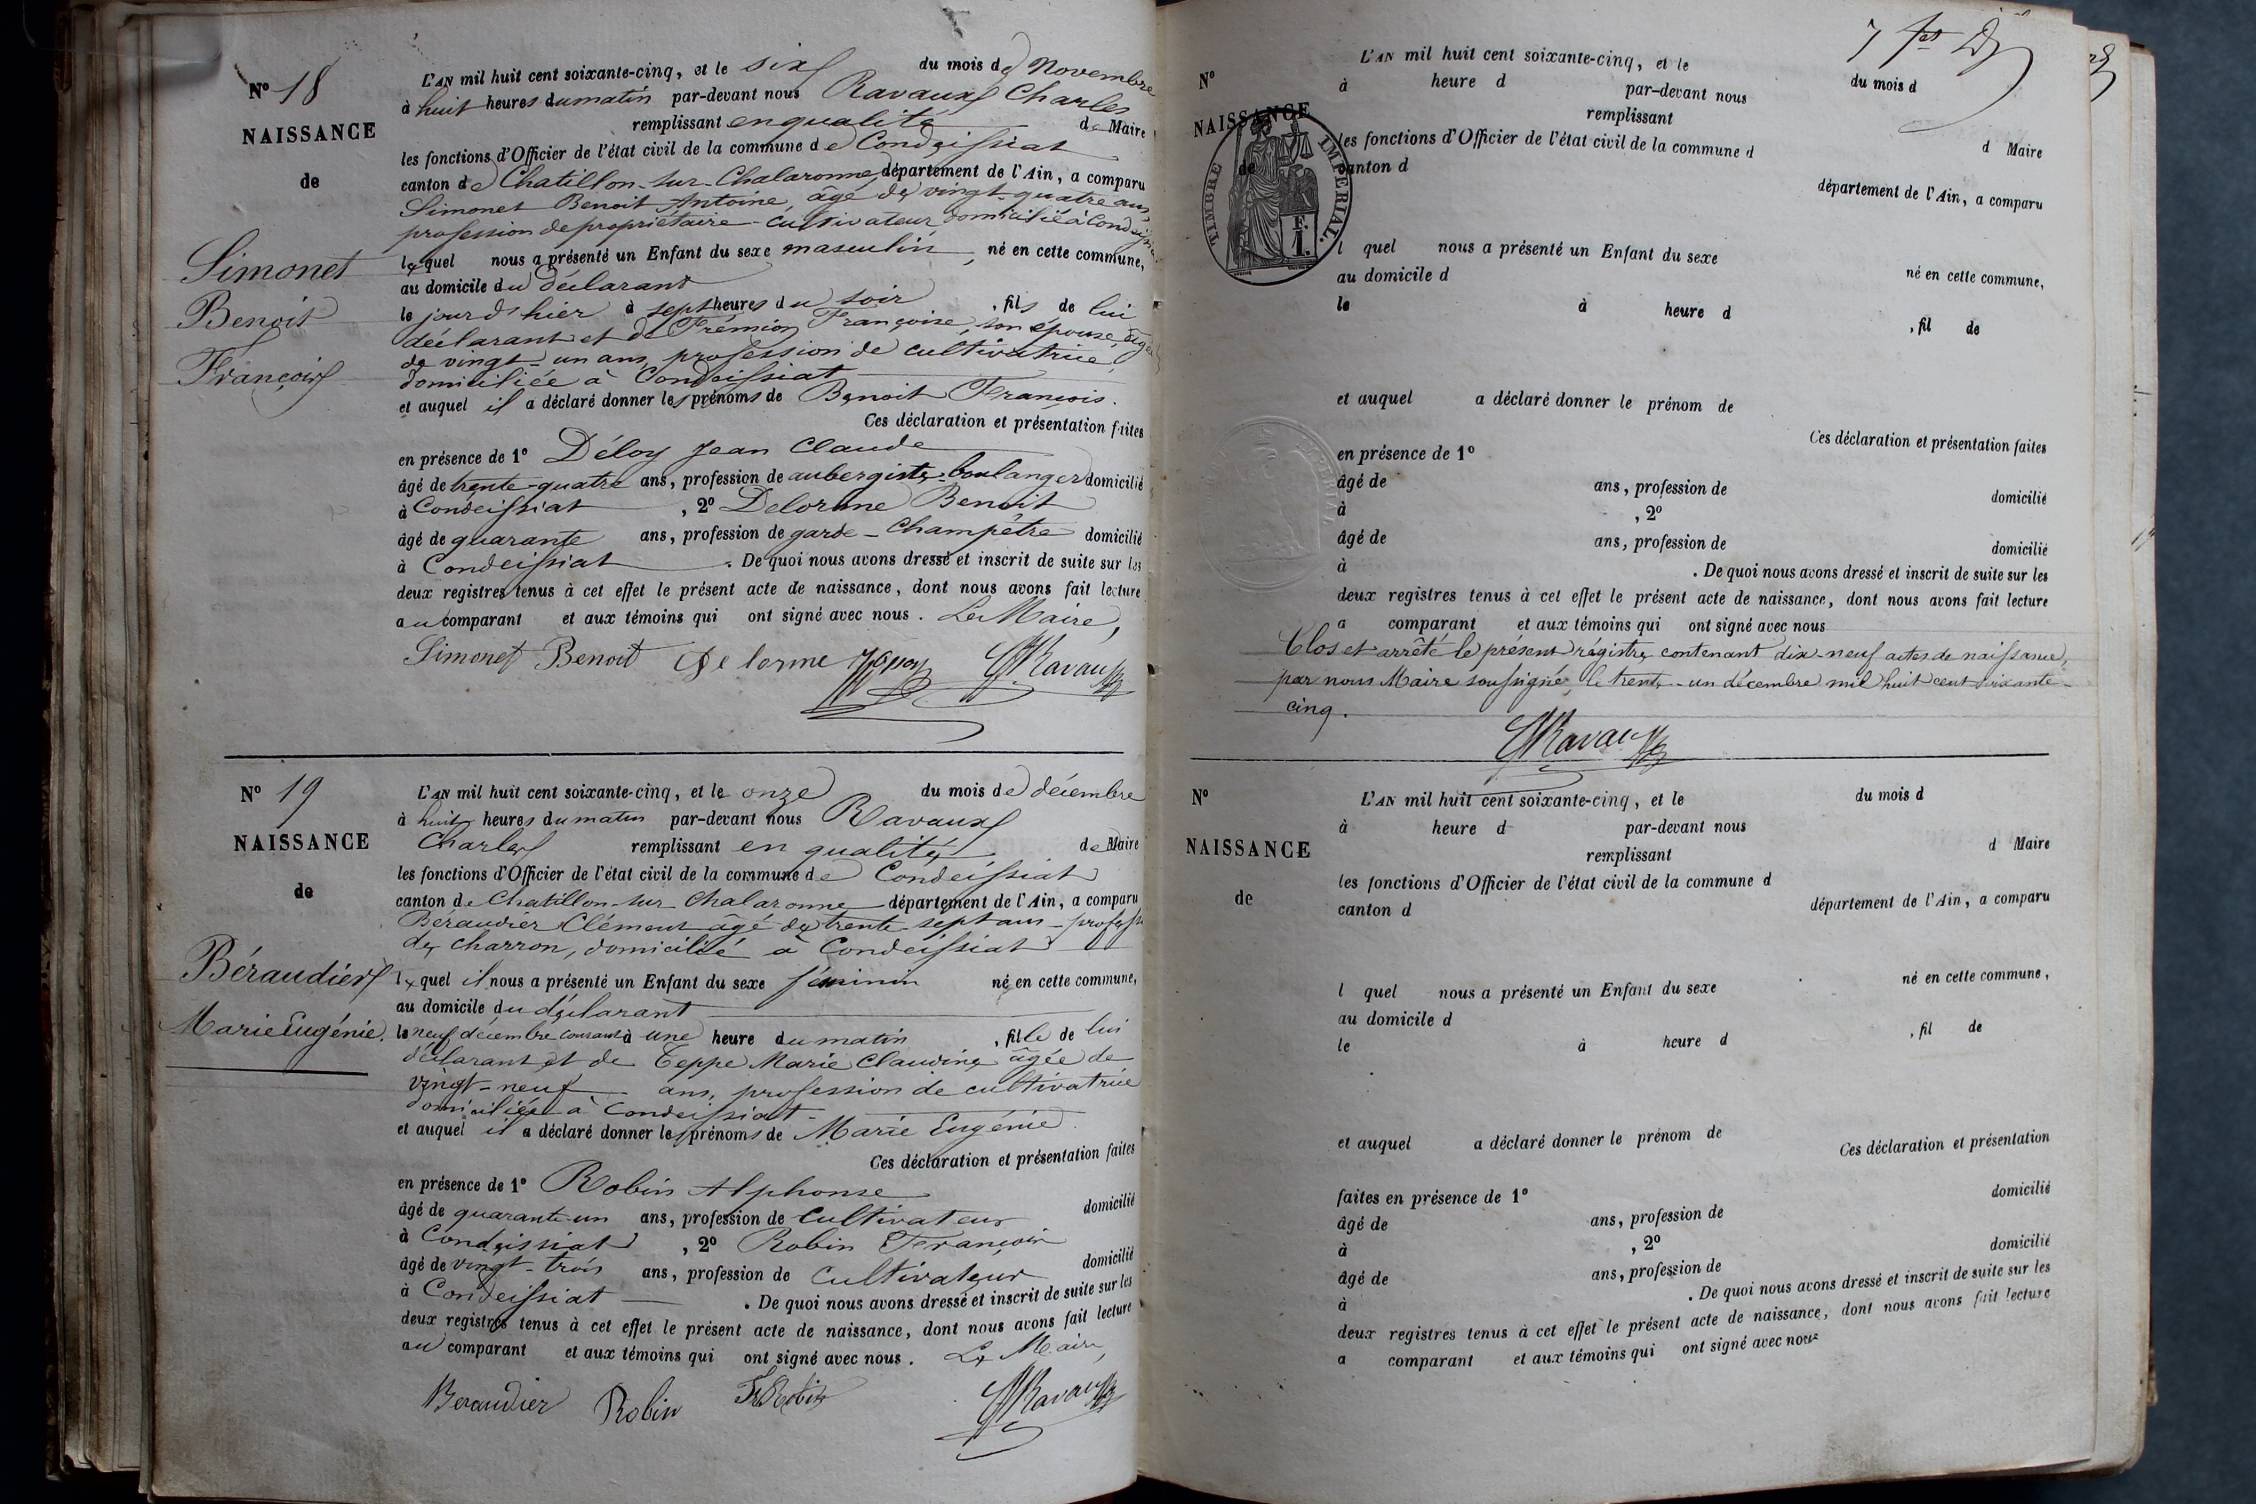 N° 18
NAISSANCE
de
Simonet
Benoit
François
L'AN mil huit cent soixante-cinq, et le six du mois de Novembre
à huit heures du matin par-devant nous Ravaux Charles
remplissant en qualité de Maire
les fonctions d'Officier de l'état civil de la commune de Condeissiat
canton de Chatillon-sur-Chalaronne, département de l'Ain, a comparu
Simonet Benoit Antoine, âgé de vingt-quatre ans,
profession de propriétaire-cultivateur domicilié à Condeissiat
lequel nous a présenté un Enfant du sexe masculin, né en cette commune,
au domicile du déclarant
le jour d'hier à sept heures du soir, fils de lui
déclarant et de Frémion Françoise, son épouse, âgée
de vingt-un ans, profession de cultivatrice,
domiciliée à Condeissiat
et auquel il a déclaré donner les prénoms de Benoit François.
Ces déclaration et présentation faites
en présence de 1° Déloy Jean Claude
âgé de trente-quatre ans, profession de aubergiste-boulanger domicilié
à Condeissiat, 2° Delorme Benoit
âgé de quarante ans, profession de garde-Champêtre domicilié
à Condeissiat. De quoi nous avons dressé et inscrit de suite sur les
deux registres tenus à cet effet le présent acte de naissance, dont nous avons fait lecture
au comparant et aux témoins qui ont signé avec nous. Le Maire,
Simonet Benoit Delorme Ravaux
N° 19
NAISSANCE
de
Béraudier
Marie Eugénie.
L'AN mil huit cent soixante-cinq, et le onze du mois de décembre
à huit heures du matin par-devant nous Ravaux
Charles remplissant en qualité de Maire
les fonctions d'Officier de l'état civil de la commune de Condeissiat
canton de Chatillon-sur-Chalaronne département de l'Ain, a comparu
Béraudier Clément âgé de trente-sept ans-profess
de charron, domicilié à Condeissiat
lequel il nous a présenté un Enfant du sexe féminin né en cette commune,
au domicile du déclarant
le neuf décembre courant à une heure du matin, fille de lui
déclarant et de Teppe Marie Claudine âgée de
vingt-neuf ans, profession de cultivatrice
domiciliée à Condeissiat
et auquel il a déclaré donner les prénoms de Marie Eugénie.
Ces déclaration et présentation faites
en présence de 1° Robin Alphonse
âgé de quarante-un ans, profession de cultivateur domicilié
à Condeissiat, 2° Robin François
âgé de vingt-trois ans, profession de Cultivateur domicilié
à Condeissiat. De quoi nous avons dressé et inscrit de suite sur les
deux registres tenus à cet effet le présent acte de naissance, dont nous avons fait lecture
au comparant et aux témoins qui ont signé avec nous. Le Maire,
Beraudier Robin Fs Robin Ravaux
N°
NAISSANCE
de
TIMBRE IMPERIAL.
L'AN mil huit cent soixante-cinq, et le du mois d
à heure d par-devant nous
remplissant d Maire
les fonctions d'Officier de l'état civil de la commune d
canton d département de l'Ain, a comparu
l quel nous a présenté un Enfant du sexe né en cette commune,
au domicile d
le à heure d , fil de
et auquel a déclaré donner le prénom de
Ces déclaration et présentation faites
en présence de 1°
âgé de ans, profession de domicilié
à , 2°
âgé de ans, profession de domicilié
à . De quoi nous avons dressé et inscrit de suite sur les
deux registres tenus à cet effet le présent acte de naissance, dont nous avons fait lecture
a comparant et aux témoins qui ont signé avec nous
Clos et arrêté le présent régistre contenant dix-neuf actes de naissance,
par nous Maire soussigné, le trente-un décembre mil huit cent soixante-
cinq.
Ravaux
N°
NAISSANCE
de
L'AN mil huit cent soixante-cinq, et le du mois d
à heure d par-devant nous
remplissant d Maire
les fonctions d'Officier de l'état civil de la commune d
canton d département de l'Ain, a comparu
l quel nous a présenté un Enfant du sexe né en cette commune,
au domicile d
le à heure d , fil de
et auquel a déclaré donner le prénom de
Ces déclaration et présentation
faites en présence de 1° domicilié
âgé de ans, profession de
à , 2° domicilié
âgé de ans, profession de
à . De quoi nous avons dressé et inscrit de suite sur les
deux registres tenus à cet effet le présent acte de naissance, dont nous avons fait lecture
a comparant et aux témoins qui ont signé avec nous